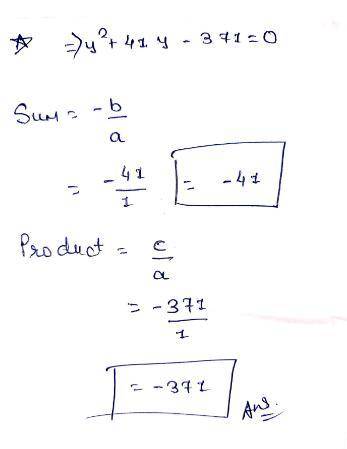 ☆ ⇒ y² + 41 y - 371 = 0
Sum = -b/a
= -41/1 = -41
Product = c/a
= -371/1
= -371 Ans.